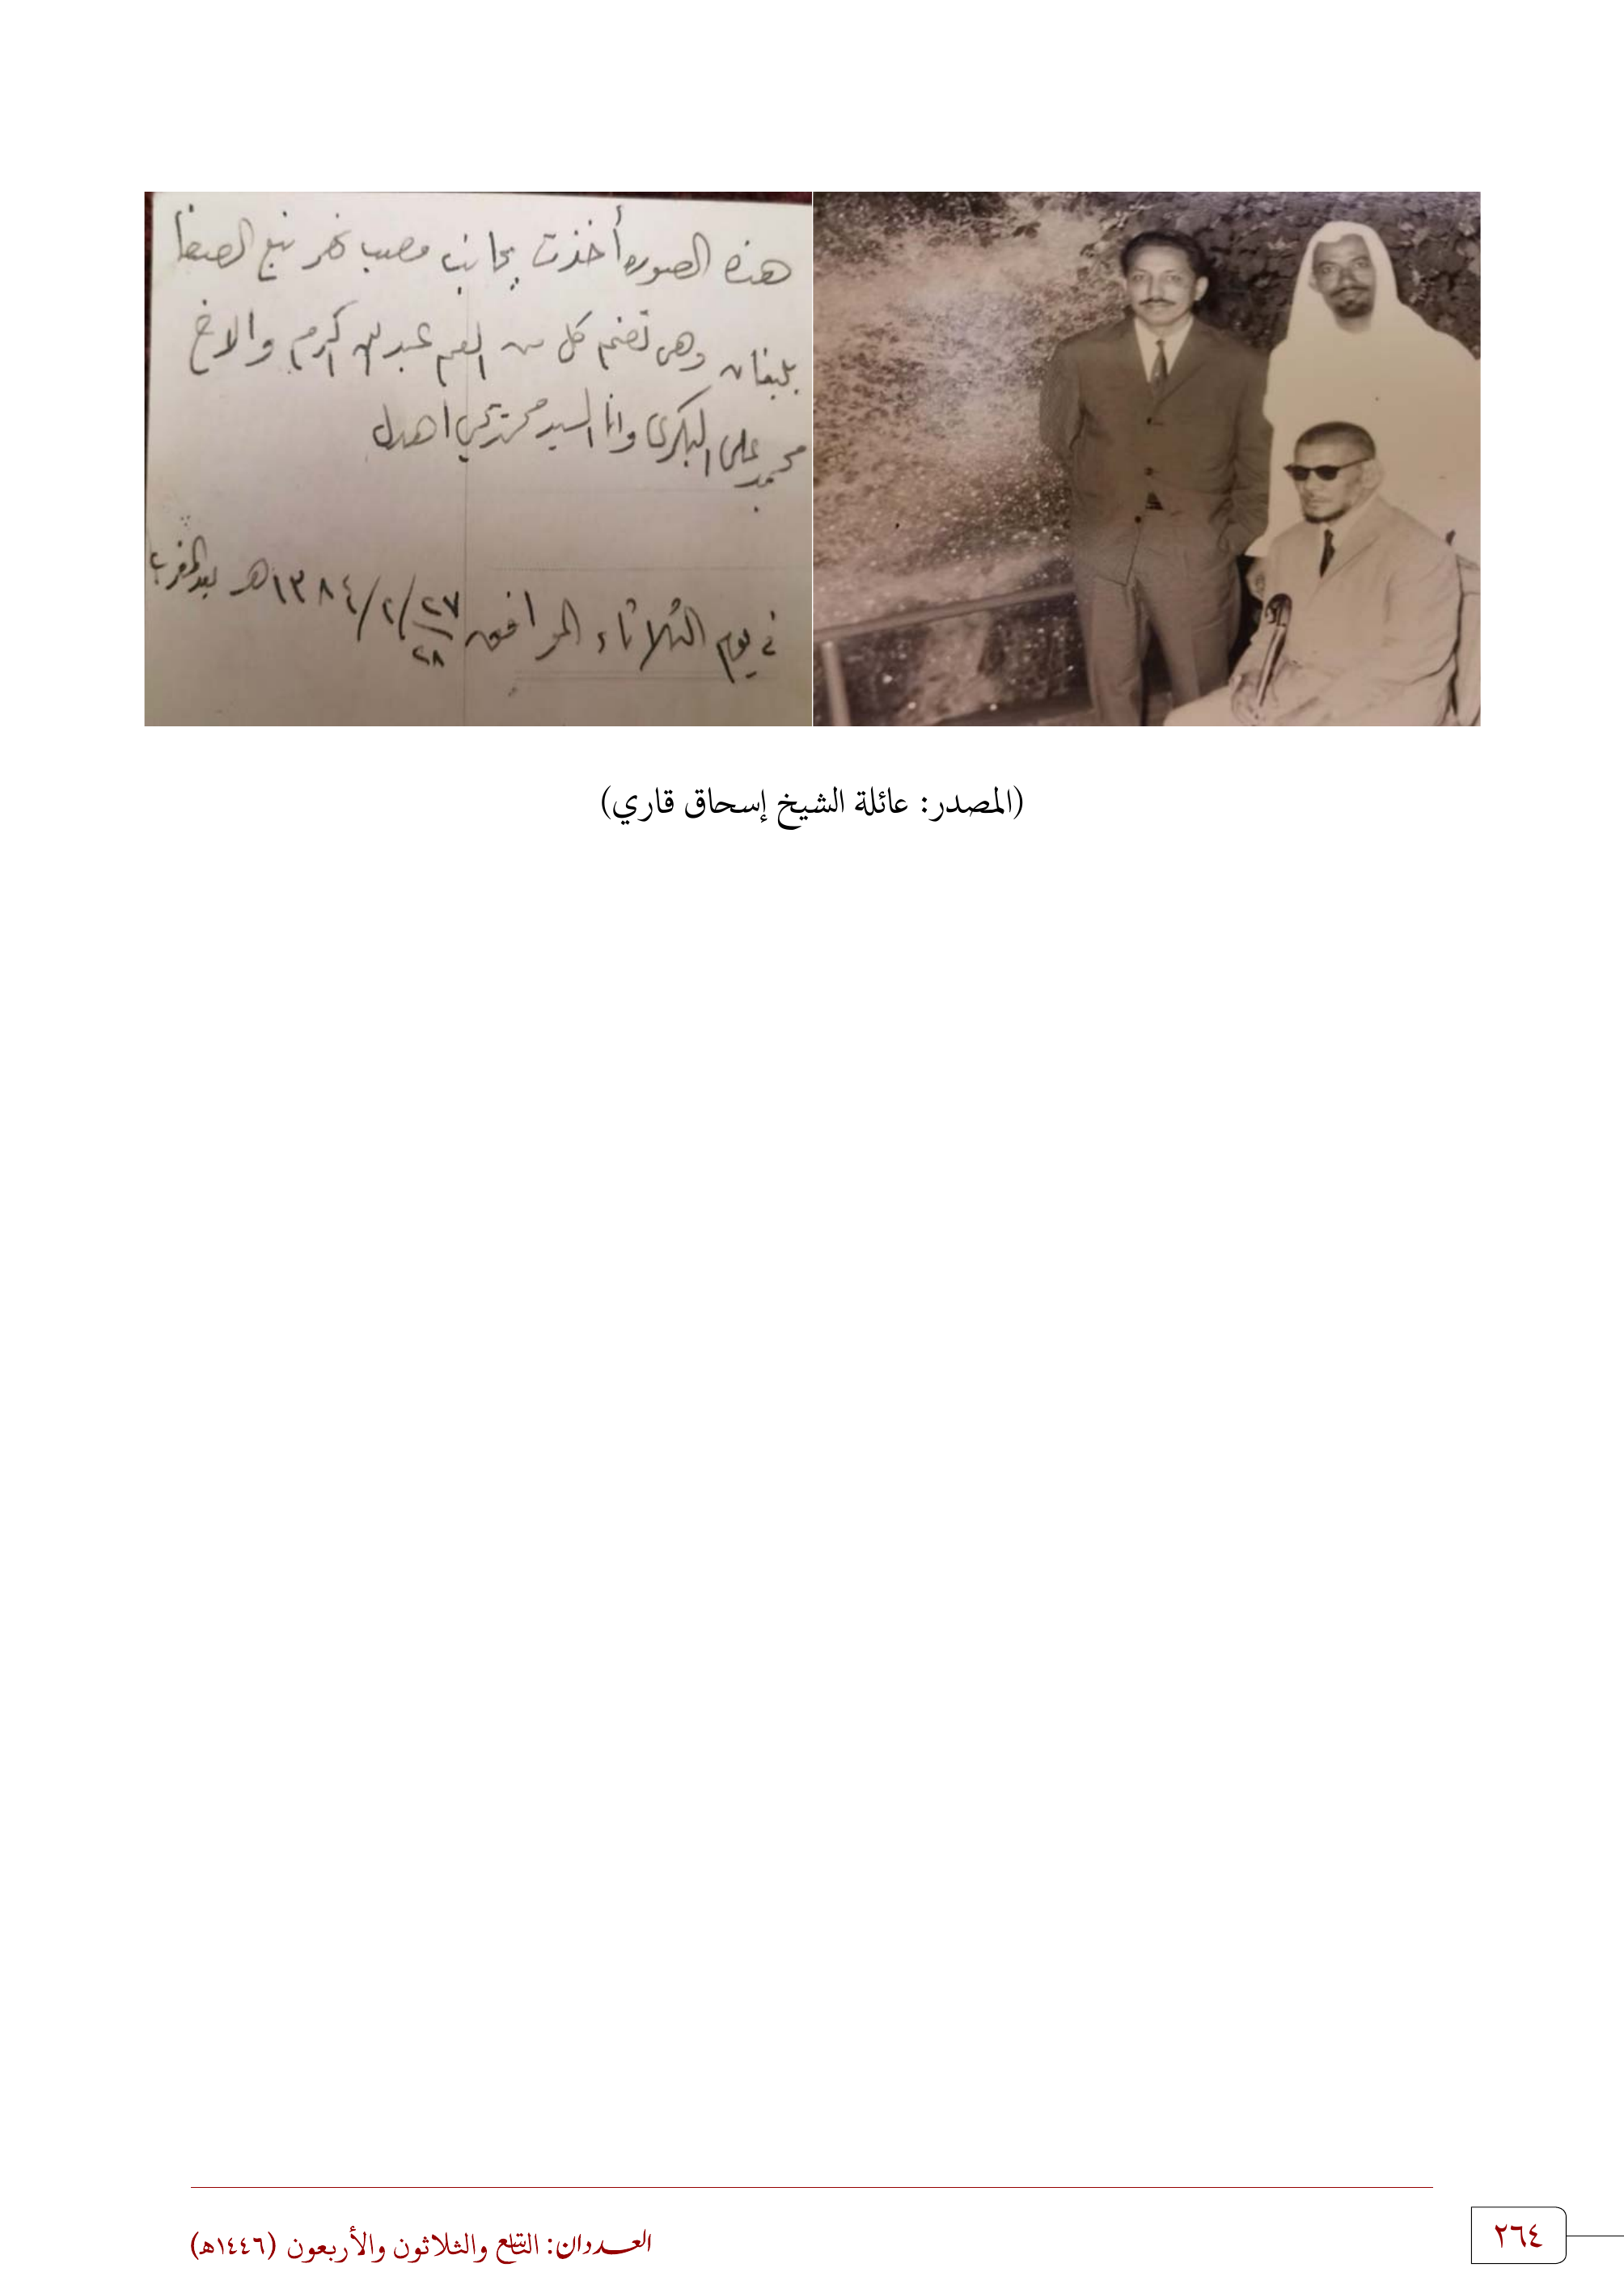 هذه الصوره أخذت بجانب مصب نهر نبع الصفا
بلبنان وهي تضم كل من العم عبد الله كرم والاخ
محمد علي البكرى وانا السيد محمد يحي اهدل
في يوم الثلاثاء الموافق ٢٧/٢/١٣٨٤هـ بعد المغرب
٢٨
(المصدر: عائلة الشيخ إسحاق قاري)
العددان: التاسع والثلاثون والأربعون (١٤٤٦هـ)
٢٦٤